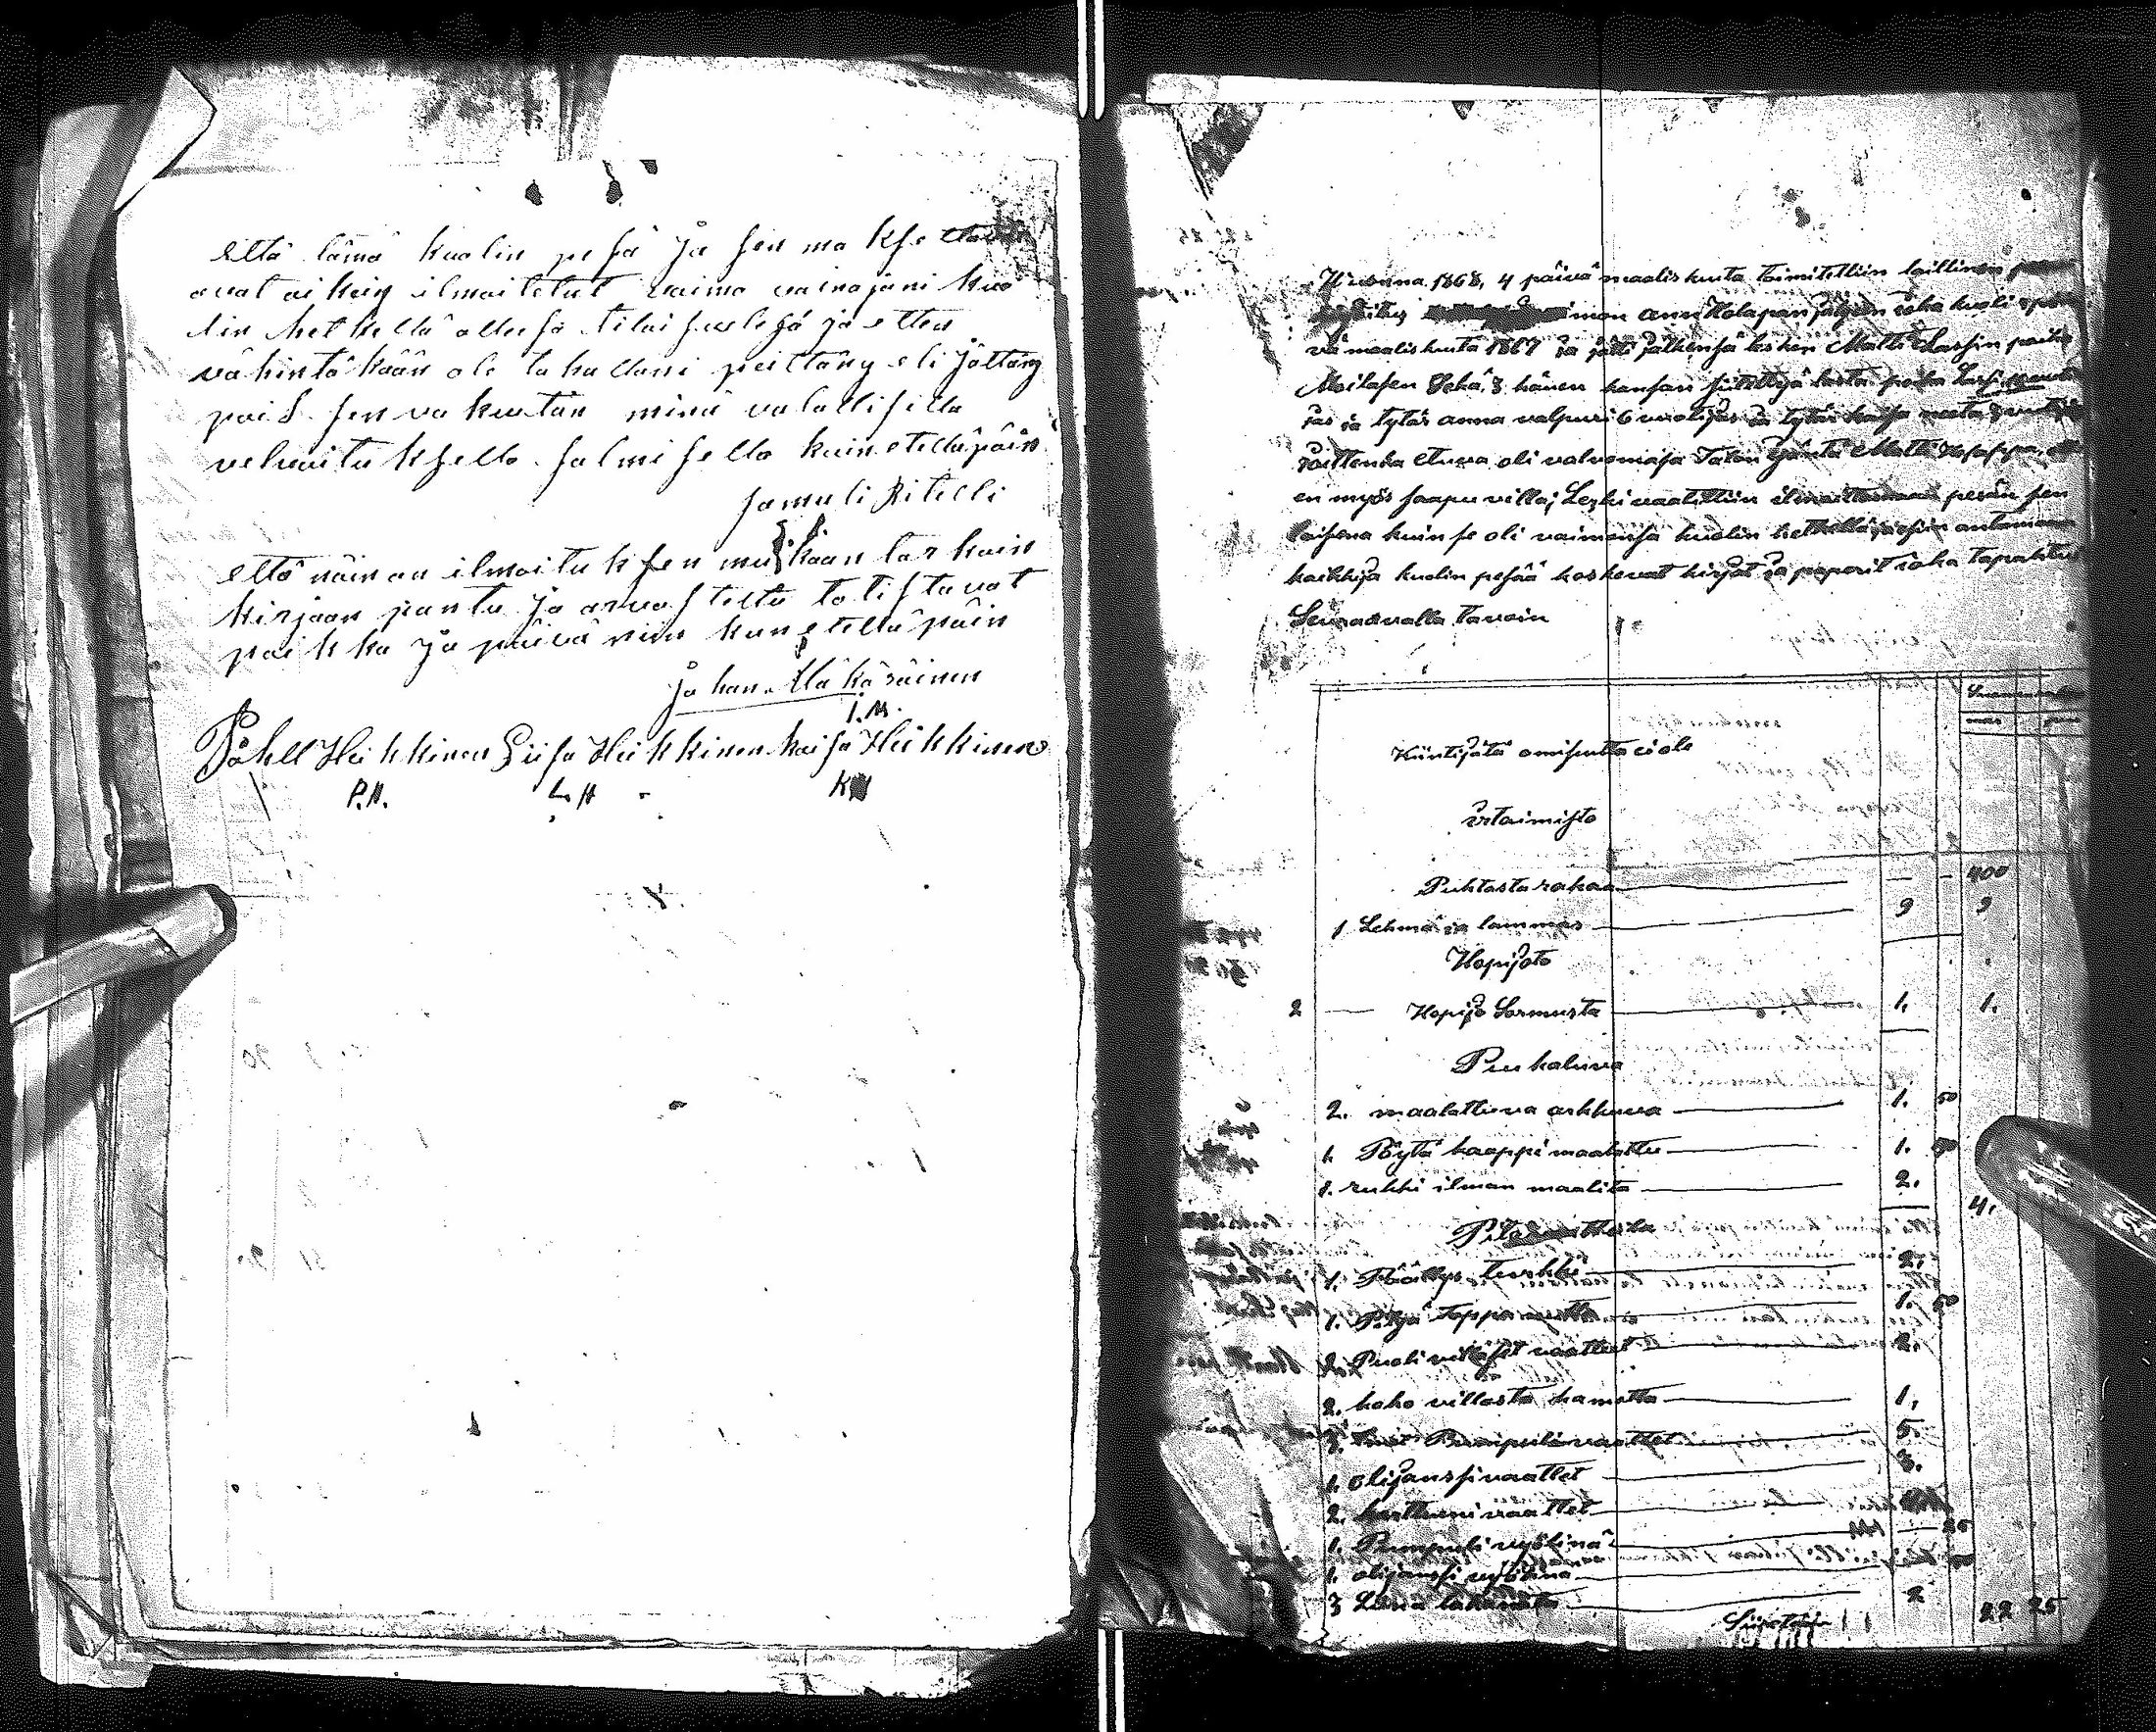 että tämä kuolin pesä ja sen ma kse ttavat
ovat oikein ilmoitetut vaimo vainajani kuo
lin hetkellä olleesa tilaisuudesa ja etten
vähintäkään ole tahallani peittäny eli jättäny
pois sen vakuutan minä valallisella
velvoitu ksella Salmisella kuin etellä päin
Samuli Ritelli
että näin on ilmoitu ksen mu kaan tar kein
kirjaan pantu ja arvosteltu totistavat
paikka ja päivä niin kun etellä päin
Johan Mä käräinen
I. M.
Påhell Heikkinen Liisa Heikkinen kaisa Heikkinen
P.H. L H K H
Wuonna 1868, 4 päivä maaliskuuta toimitettiin laillinen
mon anni Kolapan jäljen joka kuoli
vä maaliskuuta 1867 ja jätti jälkensä lesken Matti Lassin poika
Moilasen Sekä 3 hänen kansan siitettyä lasta poika Lassi
jas ja tytär anna valpuri 6 vuotijas ja tytär kaisa reeta
joittenka etuva oli valvomasa Talon Isäntä Matti
en myös saapu villa, Leski vaatittiin ilmoittamaan pesän sen
laisena kuin se oli vaimonsa kuolin hetkellä ja esiin antamaan
kaikkija kuolin pesää koskevat kirjat ja paperit joka tapahtu
Seuraavalla tavoin
Kiintijätä omisutta ei ole
irtaimisto
Puhtasta rahaa — — 400
1 Lehmä ja lammas 9 9
Hopijata
2 — Hopija Sormusta 1. 1.
Puu kaluva
2. maalattuva arkkuva 1. 50
1. Pöytä kaappi maalattu 1. 50
1. rukki ilman maalita 2.
4.
1. Päällys turkki 2.
1. Pitjä toppa nuttu 1. 50
2. Puoli villaset vaatteet 2.
2. koko villasta hametta 1.
vaattet 5.
1. olijanssi vaattet 3.
2. karttuni vaattet
1. Pumpuli vyölinä — 25
1. olijanssi vyölinä
3 Lina lakanata 2
Siirretään 22 25